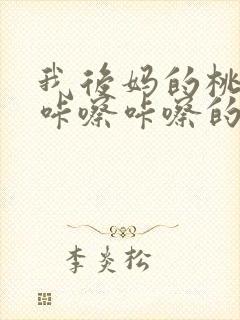 我后妈的桃
咔嚓咔嚓的
李炎松